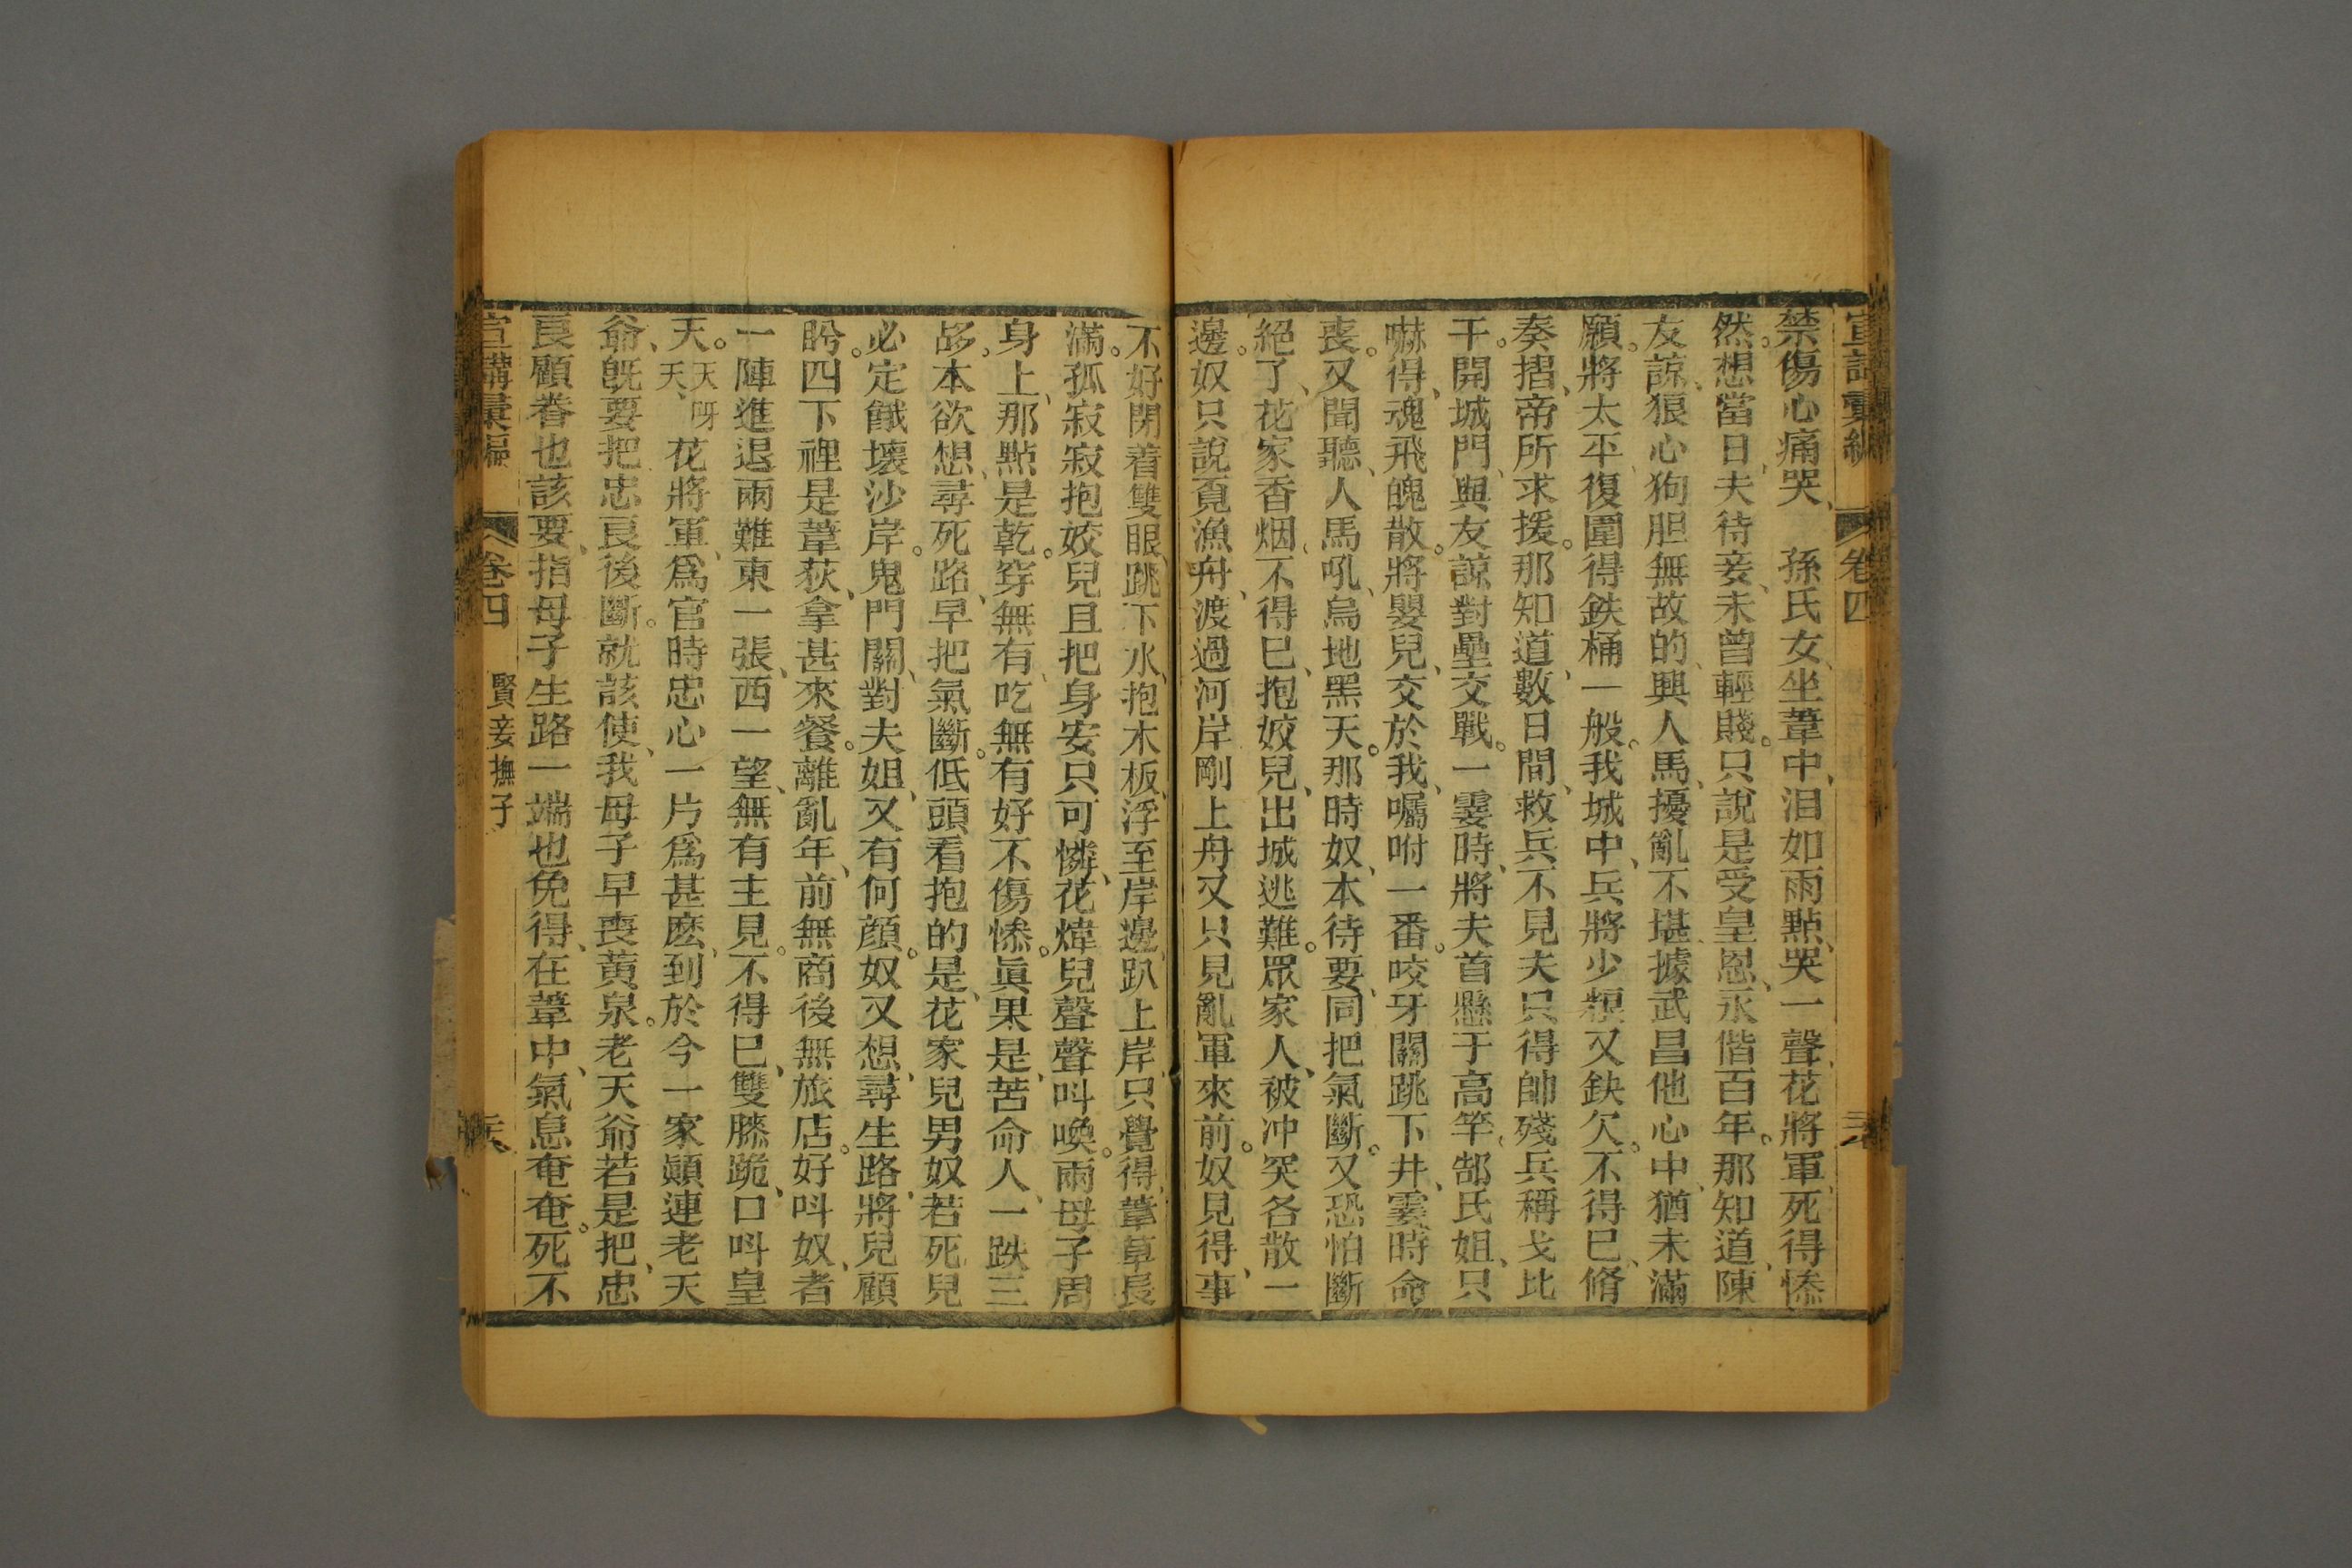 宣講彙編 卷四
禁傷心痛哭、 孫氏女、坐葦中、泪如雨點、哭一聲、花將軍、死得慘
然。想當日、夫待妾、未曾輕賤。只說是受皇恩、永偕百年。那知道、陳
友諒、狼心狗胆無故的、興人馬、擾亂不堪、據武昌他心中、猶未滿
願。將太平、復圍得鉄桶一般。我城中、兵將少、粮又缺欠。不得已、脩
奏摺、帝所求援。那知道、數日間、救兵不見夫只得帥殘兵稱戈比
干。開城門、與友諒對壘交戰。一霎時、將夫首懸于高竿、郜氏姐、只
嚇得、魂飛魄散。將嬰兒、交於我、囑咐一番。咬牙關跳下井、霎時命
喪。又聞聽、人馬吼、烏地黑天。那時奴、本待要、同把氣斷。又恐怕斷
絕了、花家香烟、不得已、抱姣兒、出城逃難。眾家人、被冲突各散一
邊。奴只說覓漁舟、渡過河岸剛上舟又只見亂軍來前。奴見得、事
不好閉着雙眼、跳下水、抱木板、浮至岸邊、趴上岸、只覺得、葦草長
滿。孤寂寂抱姣兒且把身安只可憐、花煒兒聲聲呌喚。兩母子周
身上、那點是乾。穿無有、吃無有好不傷慘。眞果是、苦命人、一跌三
跁。本欲想、尋死路、早把氣斷。低頭看抱的是、花家兒男奴若死兒
必定餓壞沙岸。鬼門關、對夫姐、又有何顏。奴又想、尋生路、將兒顧
盻。四下裡是葦荻、拿甚來餐。離亂年、前無商後無旅店。好呌奴、者
一陣進退兩難東一張、西一望、無有主見。不得已、雙膝跪、口呌皇
天。天呀天、花將軍、爲官時忠心一片爲甚麽、到於今一家顚連老天
爺、旣要把忠良後斷。就該使、我母子早喪黃泉。老天爺若是把、忠
良顧眷也該要、指母子生路一端也免得、在葦中、氣息奄奄。死不
宣講彙編 卷四 賢妾撫子